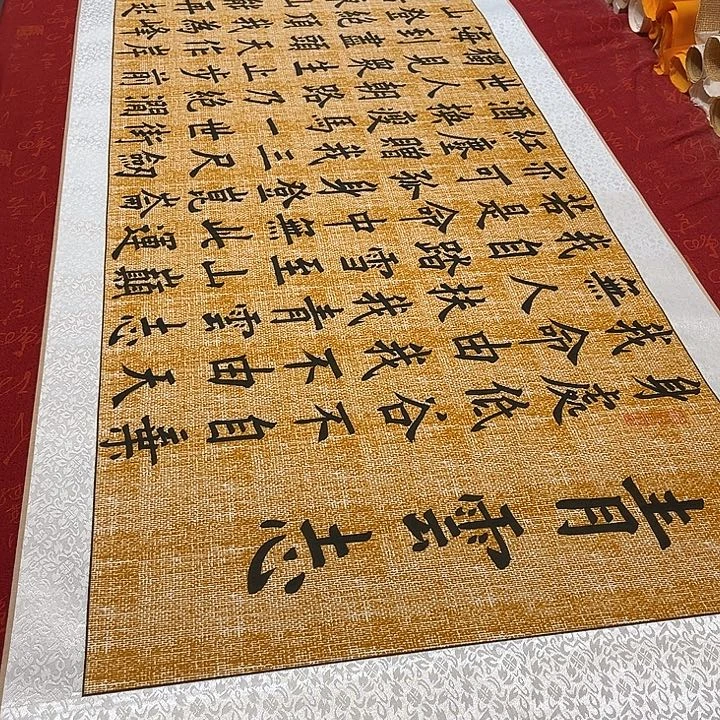 青雲志
身處低谷不自棄
我命由我不由天
無人扶我青雲志
我自踏雪至山巔
若是命中無此運
亦可孤身登崑崙
紅塵贈我三尺劍
酒換瘦馬一世街
世人路乃絕澗
獨見眾生止步前
海到盡頭天作岸
山登絕頂我為峰